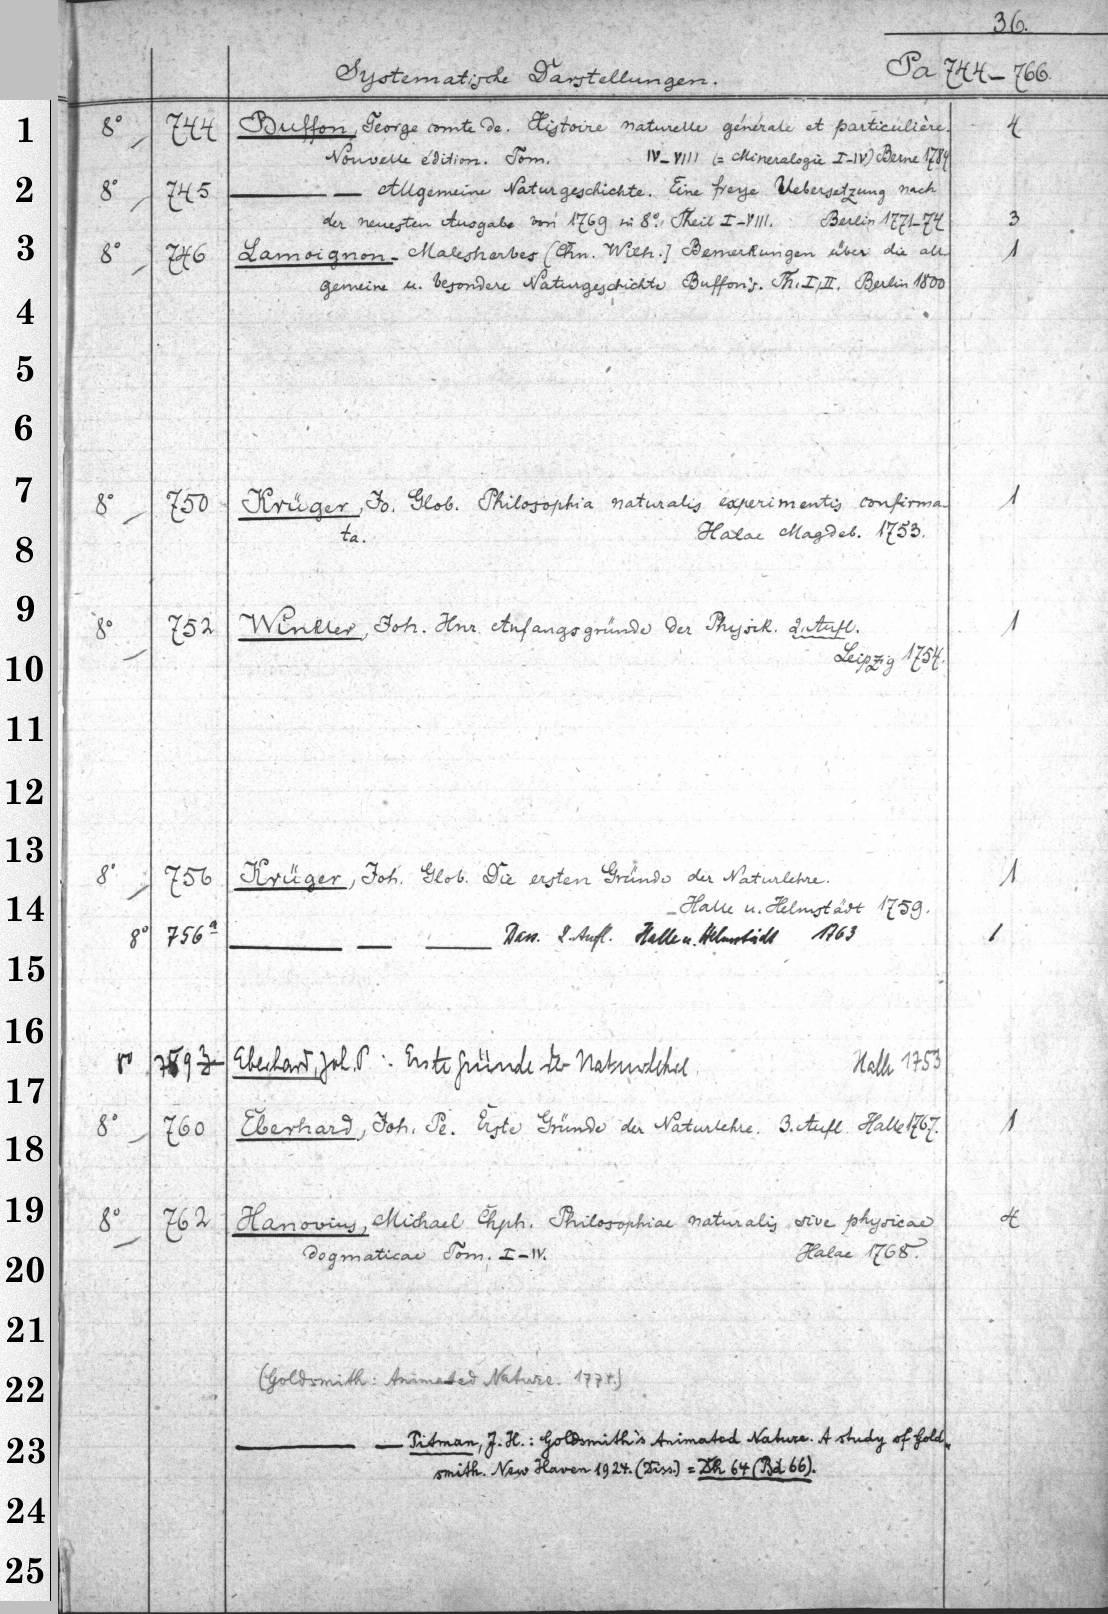 36.
Systematische Darstellungen. Pa 744–766.
1 8° 744 Buffon, George comte de. Histoire naturelle générale et particulière. 4
Nouvelle édition. Tom. IV–VIII (= Mineralogie I–IV) Berne 1789
2 8° 745 — — Allgemeine Naturgeschichte. Eine freye Uebersetzung nach
der neuesten Ausgabe von 1769 in 8°. Theil I–VIII. Berlin 1771–74 3
3 8° 746 Lamoignon-Malesherbes [Chn. Wilh.] Bemerkungen über die all- 1
gemeine u. besondere Naturgeschichte Buffon's. Th. I, II. Berlin 1800
4
5
6
7 8° 750 Krüger, Jo. Glob. Philosophia naturalis experimentis confirma- 1
8 ta. Halae Magdeb. 1753.
9 8° 752 Winkler, Joh. Hnr. Anfangsgründe der Physik. 2. Aufl. 1
10 Leipzig 1754.
11
12
13 8° 756 Krüger, Joh. Glob. Die ersten Gründe der Naturlehre. 1
14 Halle u. Helmstädt 1759.
8° 756a — — — Dass. 2. Aufl. Halle u. Helmstädt 1763 1
15
16
8° 759 Eberhard, Joh. P : Erste Gründe der Naturlehre. Halle 1753
17 8° 760 Eberhard, Joh. Pe. Erste Gründe der Naturlehre. 3. Aufl. Halle 1767. 1
18
19 8° 762 Hanovius, Michael Chph. Philosophiae naturalis sive physicae 4
20 dogmaticae Tom. I–IV. Halae 1768.
21
22 (Goldsmith: Animated Nature. 1774.)
23 — — Pitman, J. H.: Goldsmith's Animated Nature. A study of Gold-
smith. New Haven 1924. (Diss.) = Dk 64 (Bd 66).
24
25